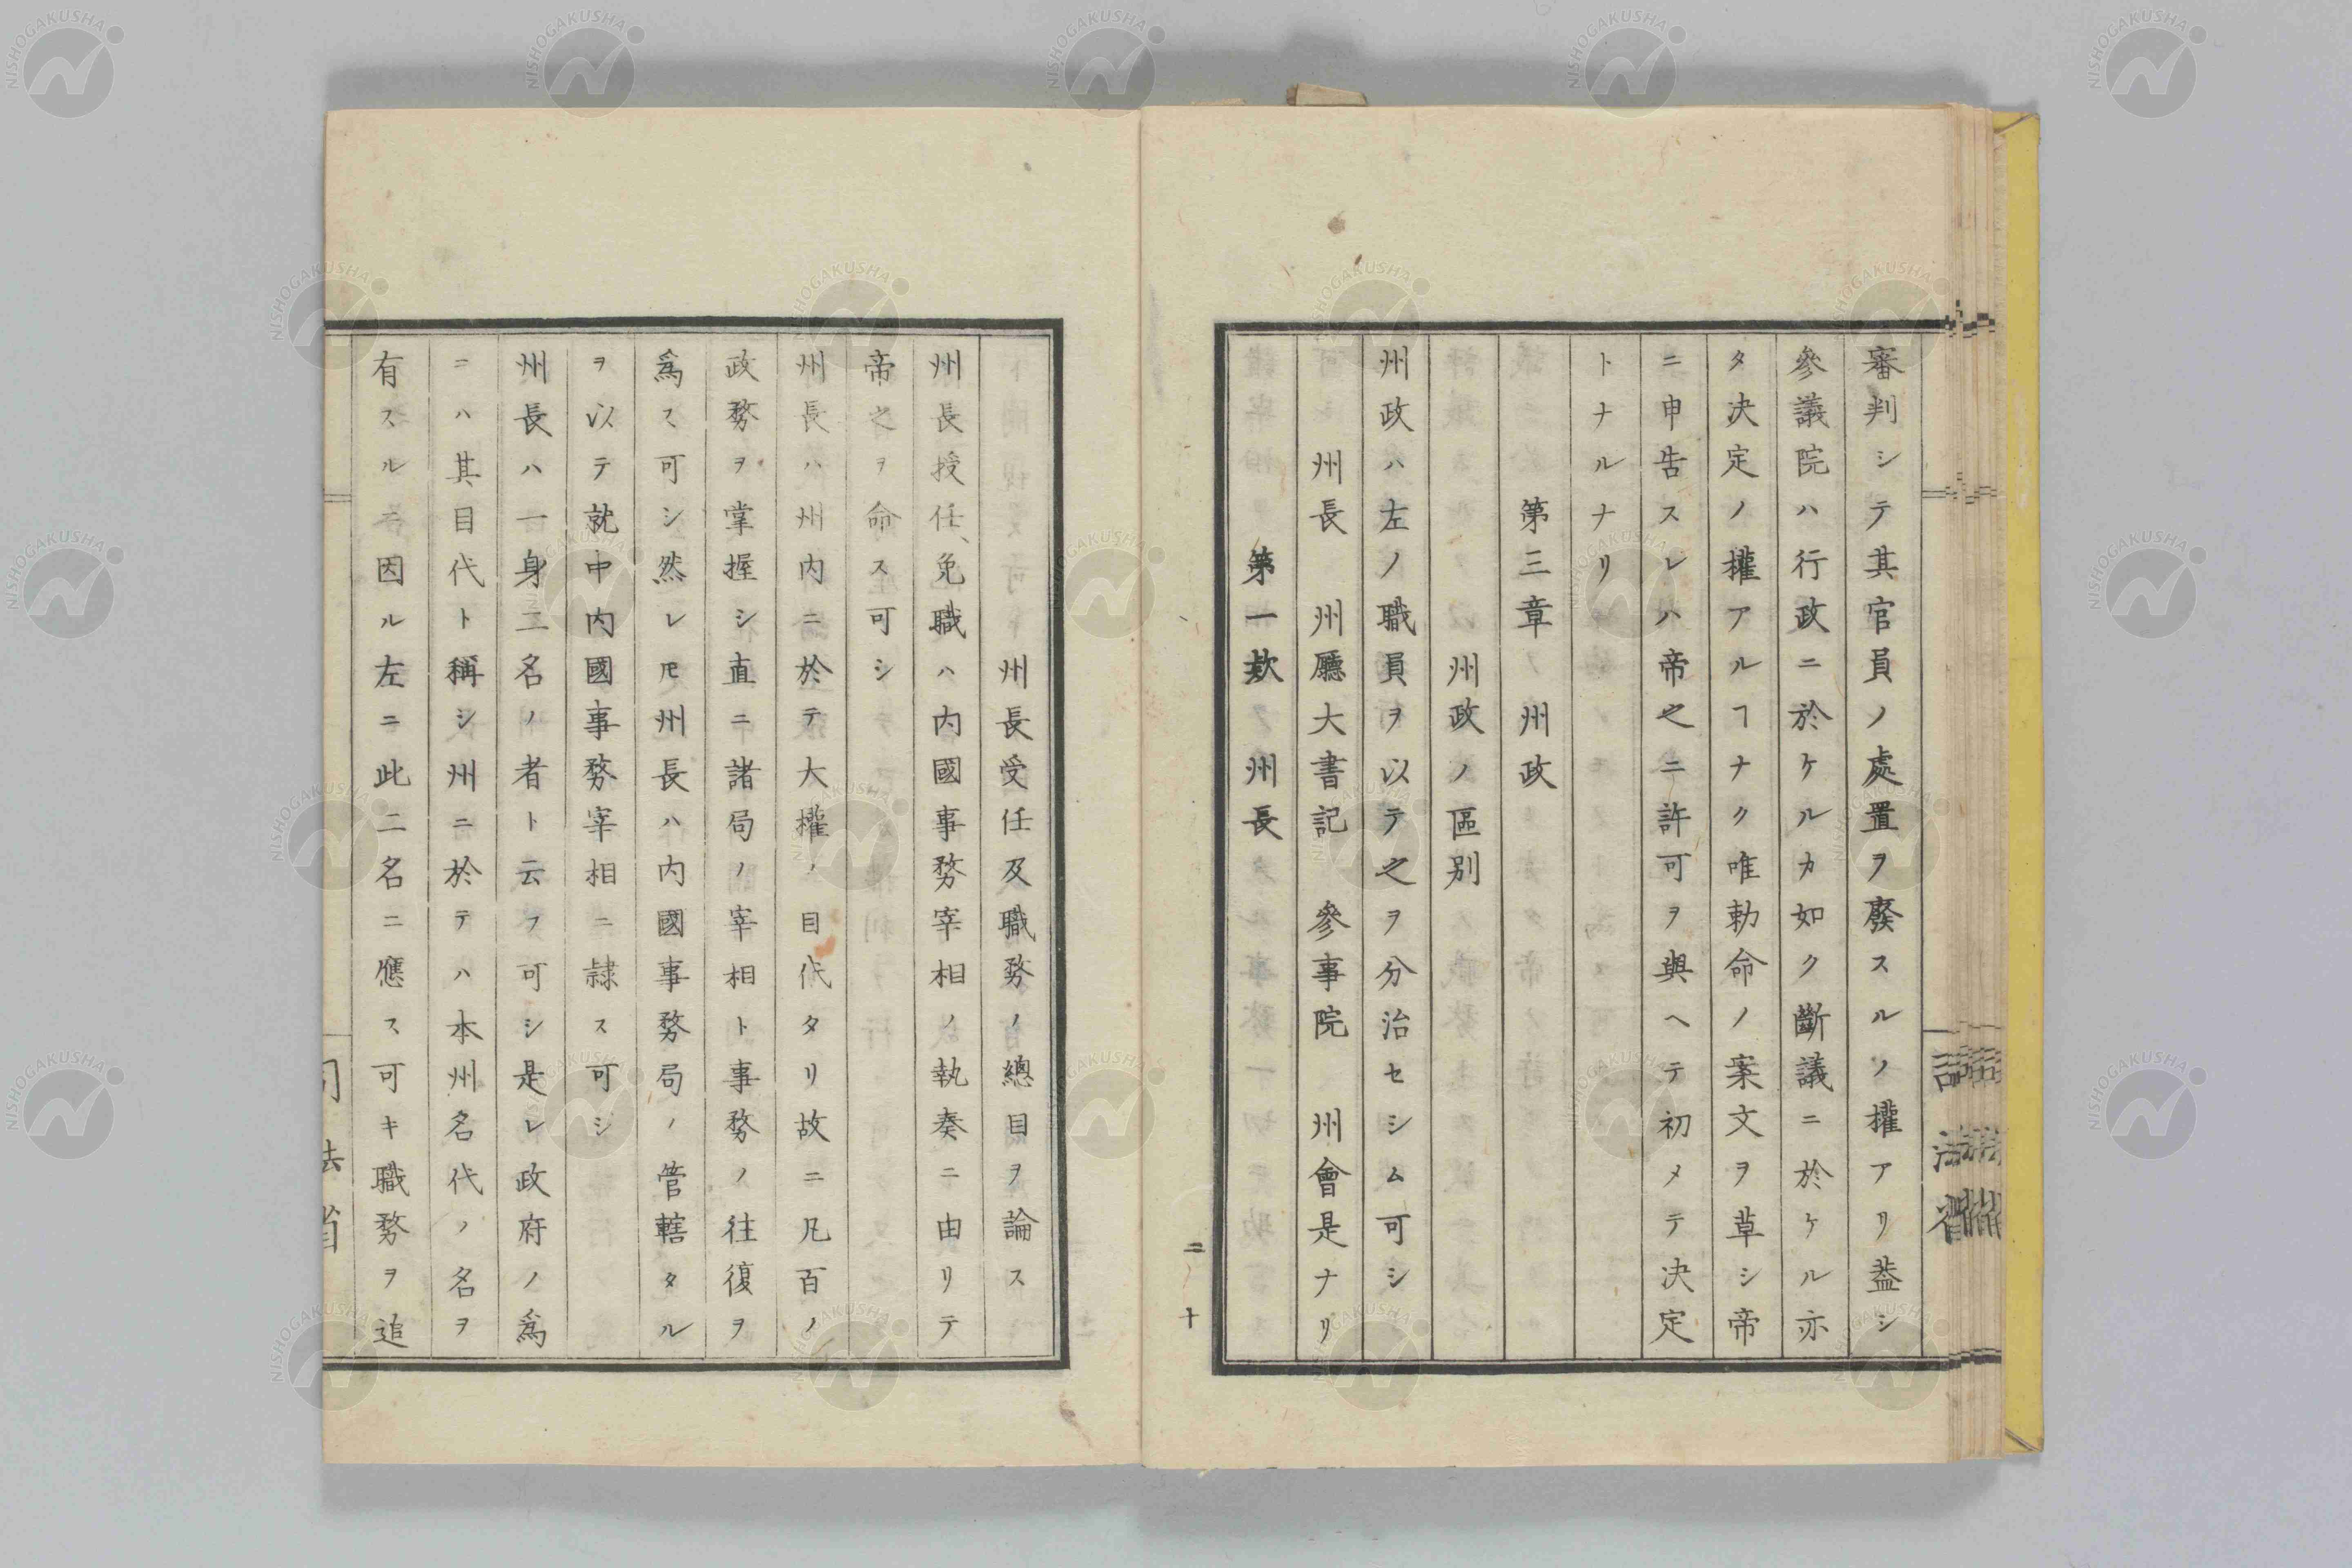 審判シテ其官員ノ處置ヲ廢スルノ權アリ葢シ
參議院ハ行政ニ於ケルカ如ク斷議ニ於ケル亦
タ決定ノ權アルヿナク唯勅命ノ案文ヲ草シ帝
ニ申告スレハ帝之ニ許可ヲ與ヘテ初メテ決定
トナルナリ
第三章 州政
州政ノ區別
州政ハ左ノ職員ヲ以テ之ヲ分治セシム可シ
州長 州廳大書記 參事院 州會是ナリ
第一欵 州長
二十
州長受任及職務ノ總目ヲ論ス
州長授任、免職ハ內國事務宰相ノ執奏ニ由リテ
帝之ヲ命ス可シ
州長ハ州内ニ於テ大權ノ目代タリ故ニ凡百ノ
政務ヲ掌握シ直ニ諸局ノ宰相ト事務ノ往復ヲ
爲ス可シ然レ𪜈州長ハ内國事務局ノ管轄タル
ヲ以テ就中内國事務宰相ニ隷ス可シ
州長ハ一身二名ノ者ト云フ可シ是レ政府ノ爲
ニハ其目代ト稱シ州ニ於テハ本州名代ノ名ヲ
有スルニ因ル左ニ此二名ニ應ス可キ職務ヲ追
司法省
NISHOGAKUSHA